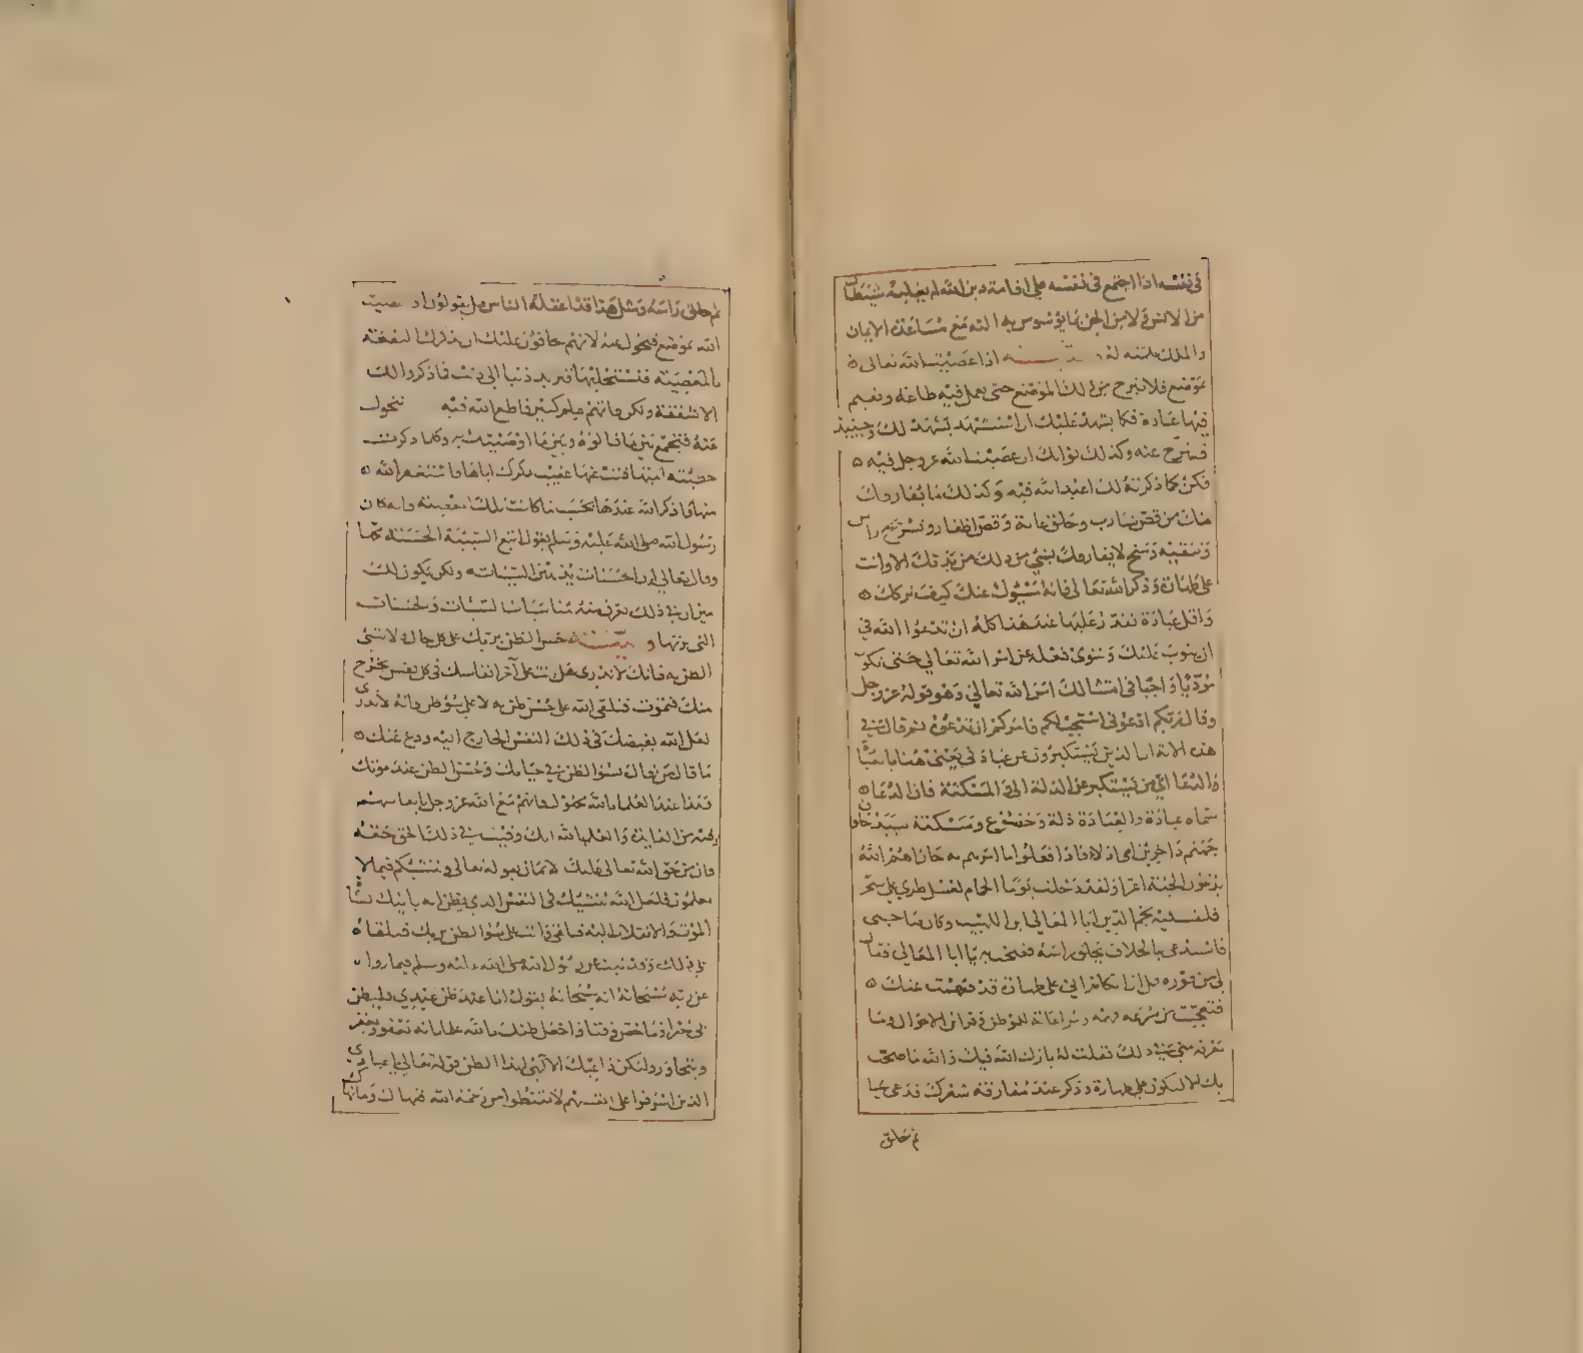 في نفسه اذا اجتمع في نفسه على اقامة دين الله لم يغلبه شيطان
من الانس ولا من الجن بما يوسوس به الله مع مساعدة الايمان
والملك بلمته له وصية اذا عصيت الله تعالى
بموضع فلا تبرح من ذلك الموضع حتى تعمل فيه طاعة وتقيم
فيها عبادة فكما يشهد عليك ان استشهد يشهد لك وحينئذ
تنتزح عنه وكذلك ثوابك ان عصيت الله عز وجل فيه
فكن كما ذكرته لك اعبد الله فيه وكذلك ما يفارقك
منك من قص شارب وحلق عانة وقص اظفار وتسريح راس
وتنقية وسخ لا يفارقك شيء من ذلك من بدنك الا وانت
على طهارة وذكر الله تعالى فانه يسئل عنك كيف تركك
واقل عبادة تقدر عليها عند هذا كله ان تدعوا الله في
ان يتوب عليك وتنوى فعله عن امر الله تعالى حتى تكون
مؤديا واجبا في امتثالك امر الله تعالى وهو قوله عز وجل
وقال ربكم ادعوني استجب لكم فامركم ان تدعوه ثم قال في
هذه الاية ان الذين يستكبرون عن عبادتي يعني هنا بالعبادة
الدعا اي من يستكبر عن الذلة الي والمسكنة فان الدعا
سماه عبادة والعبادة ذلة وخضوع ومسكنة سيدخلون
جهنم داخرين اي اذلاء فاذا فعلوا ما امرهم به جازاهم الله
بدخول الجنة اعزاء ولقد دخلت يوما الحمام لغسل طري علي سحر
فلقيت فيه نجم الدين ابا المعالي ابن اللهيب وكان صاحبي
فاستدعى بالحلاق يحلق راسه فصحت به يا ابا المعالي فقال
لي من فوره قبل ان اتكلم اني على طهارة قد فهمت عنك
فتعجبت من سرعة فهمه ومراعاته للموطن وقراين الاحوال وما
يعرفه مني في ذلك فقلت له بارك الله فيك والله ما صحت
بك الا لتكون على طهارة وذكر عند مفارقة شعرك فدعى لي
ثم حلق
ثم حلق راسه ومثل هذا قد اغفله الناس بل يقولون اذا عصيت
الله بموضع فتحول عنه لانهم خافون عليك ان تذكرك البقعة
بالمعصية فتستحليها فتزيد ذنبا الى ذنب فما ذكروا لك
الا شفقة ولكن فاتهم علم كبير فاطع الله فيه وتحول
عنه فتجمع بين ما قالوه وبين ما اوصيتك به وكلما ذكرت
خطيئة اتيتها فتب عنها عقيب ذكرك اياها واستغفر الله
منها واذكر الله عندها بحسب ما كانت تلك المعصية فان
رسول الله صلى الله عليه وسلم يقول اتبع السيئة الحسنة تمحها
وقال تعالى ان الحسنات يذهبن السيئات ولكن يكون لك
ميزان في ذلك تعرف منه مناسبات السيئات والحسنات
التي تزنها وصية حسن الظن بربك على كل حال ولا تسئ
الظن به فانك لا تدرى هل انت على آخر انفاسك في كل نفس يخرج
منك فتموت فتلقى الله على حسن ظن به لا على سوء ظن فانه لا تدرى
لعل الله يقبضك في ذلك النفس الخارج اليه ودع عنك
ما قال من قال بسوء الظن في حياتك وحسن الظن عند موتك
وهذا عند العلماء بالله مجهول فانهم مع الله عز وجل بانفاسهم
وفيه من الفايدة والعلم بالله انك وفيت في ذلك الحق حقه
فان من حق الله تعالى عليك الايمان بقوله تعالى وننشئكم فيما لا
تعلمون فلعل الله ينشئك في النفس الذي تظن انه ياتيك نشأة
الموت والانقلاب اليه فتلقى وانت على سوء الظن بربك فتلقاه
على ذلك وقد ثبت عن رسول الله صلى الله عليه وسلم فيما رواه
عن ربه سبحانه انه سبحانه يقول انا عند ظن عبدي بي فليظن
بي خيرا وما خص وقتا واجعل ظنك بالله علما بانه يعفو ويغفر
ويتجاوز وليكن داعيك الالهي لهذا الظن قوله تعالى يا عبادي
الذين اسرفوا على انفسهم لا تقنطوا من رحمة الله فنهاك وما نهاك